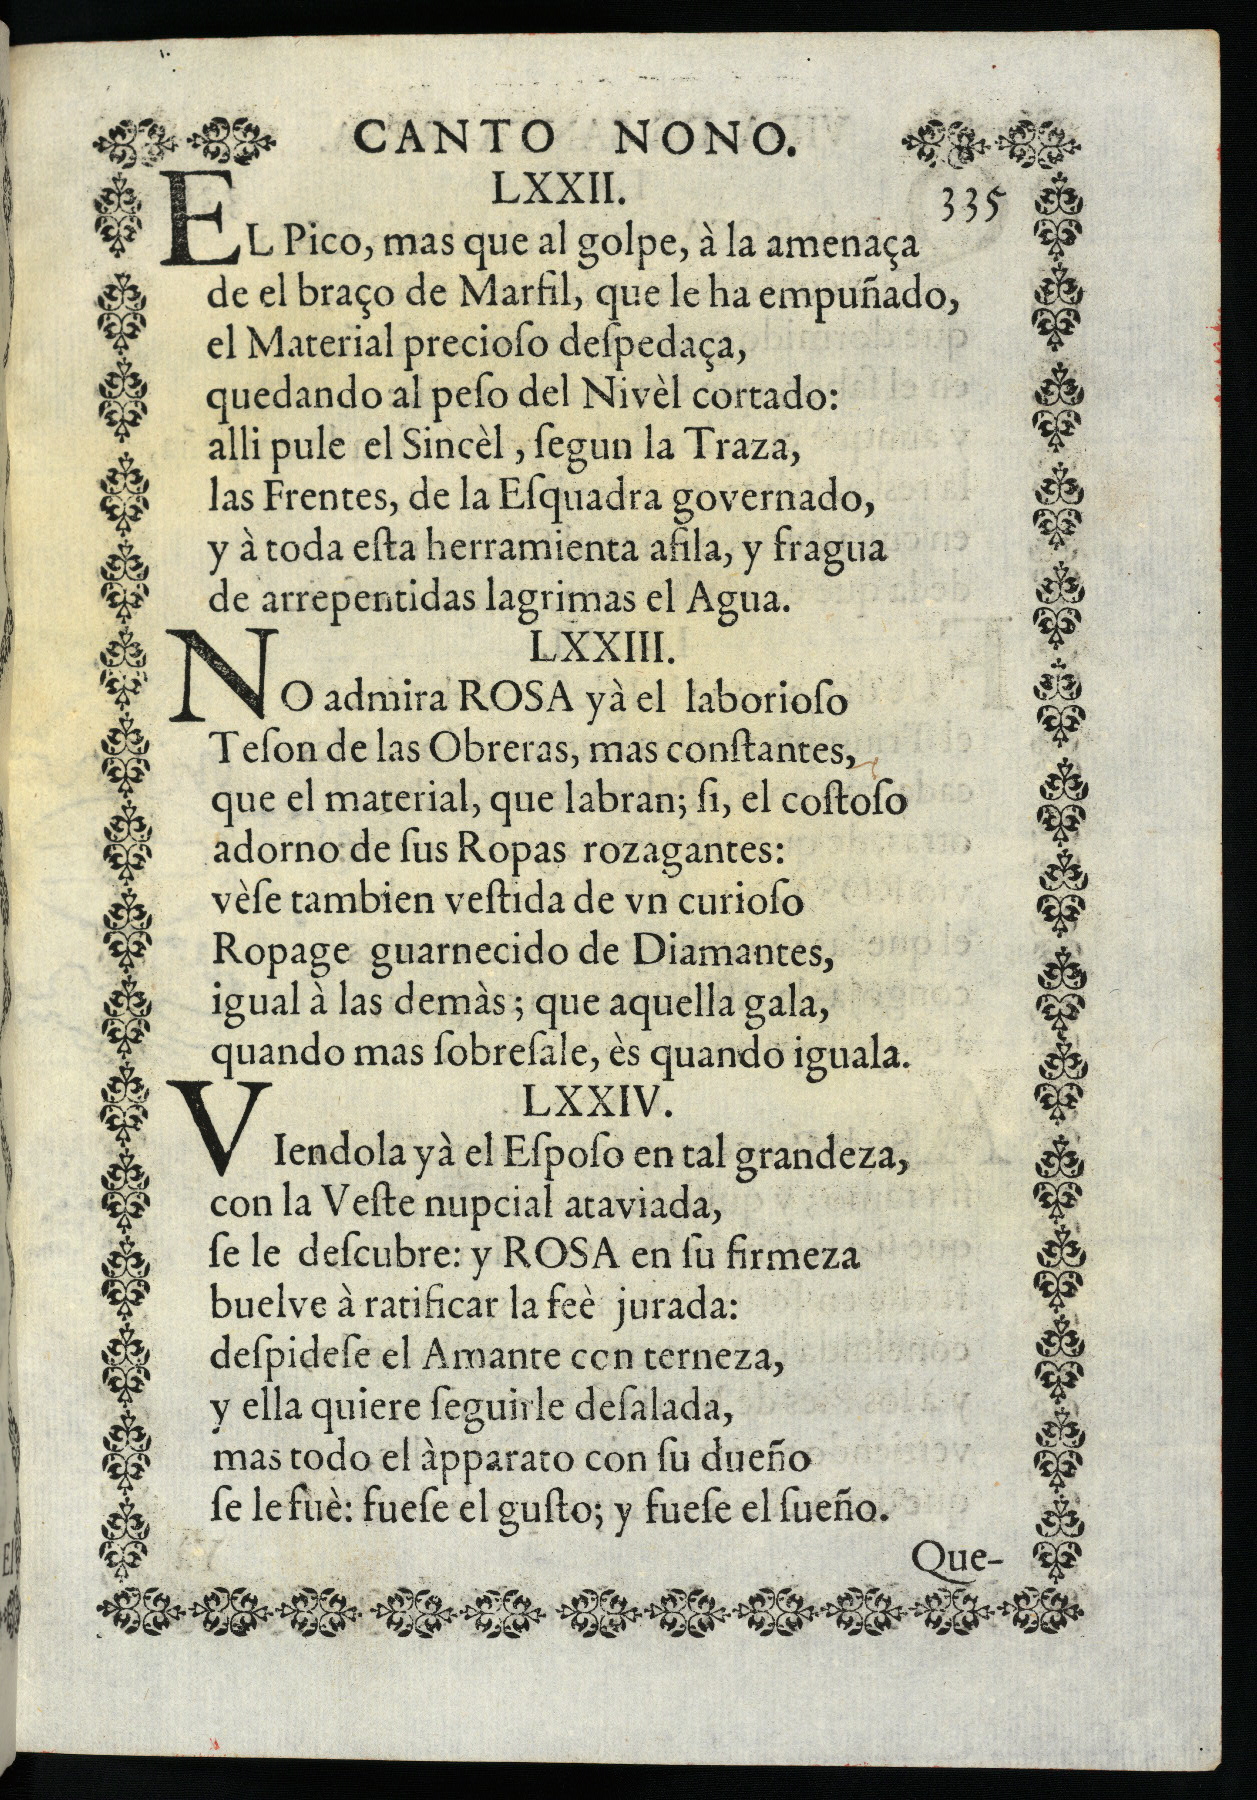 CANTO NONO.
335
LXXII.
EL Pico, mas que al golpe, à la amenaça
de el braço de Marfil, que le ha empuñado,
el Material precioſo deſpedaça,
quedando al peſo del Nivèl cortado:
alli pule el Sincèl, ſegun la Traza,
las Frentes, de la Eſquadra governado,
y à toda eſta herramienta afila, y fragua
de arrepentidas lagrimas el Agua.
LXXIII.
NO admira ROSA yà el laborioſo
Teſon de las Obreras, mas conſtantes,
que el material, que labran; ſi, el coſtoſo
adorno de ſus Ropas rozagantes:
vèſe tambien veſtida de vn curioſo
Ropage guarnecido de Diamantes,
igual à las demàs; que aquella gala,
quando mas ſobreſale, ès quando iguala.
LXXIV.
VIendola yà el Eſpoſo en tal grandeza,
con la Veſte nupcial ataviada,
ſe le deſcubre: y ROSA en ſu firmeza
buelve à ratificar la feè jurada:
deſpideſe el Amante con terneza,
y ella quiere ſeguirle deſalada,
mas todo el àpparato con ſu dueño
ſe le fuè: fueſe el guſto; y fueſe el ſueño.
Que-